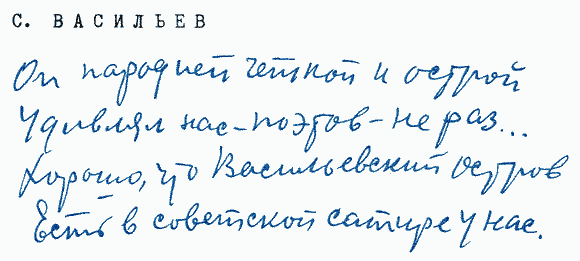 С. ВАСИЛЬЕВ
Он пародией чёткой и острой
Удивлял нас – поэтов – не раз...
Хорошо, что Васильевский остров
Есть в советской сатире у нас.